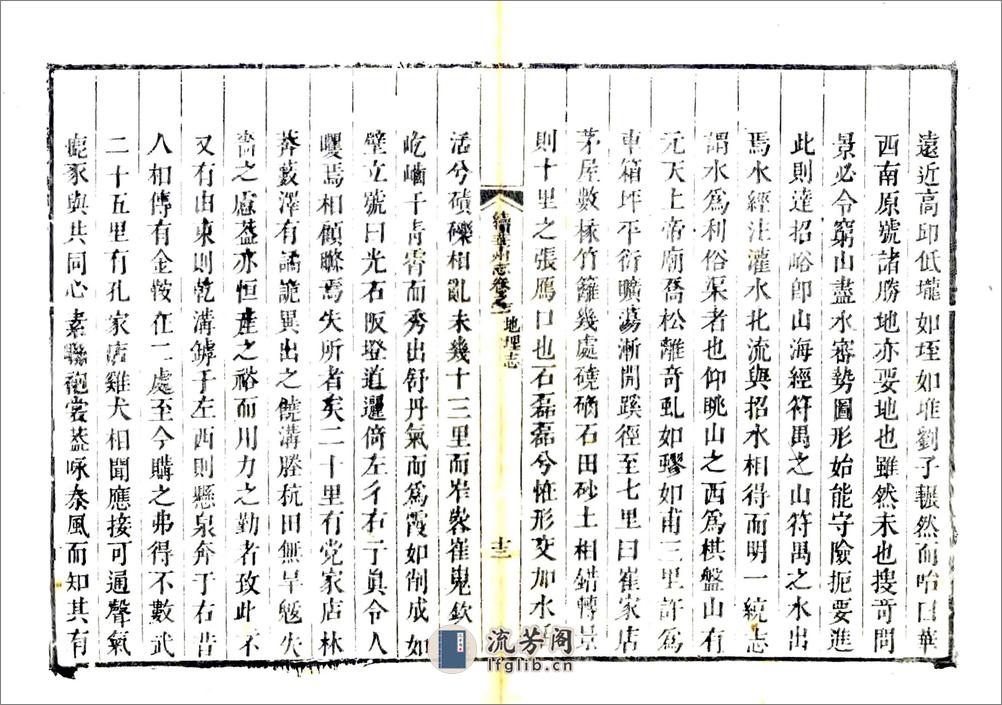 遠近高卬低壠如垤如堆劉子囅然而哈曰華
西南原號諸勝地亦要地也雖然未也搜奇問
景必令窮山盡水審勢圖形始能守險扼要進
此則達招峪卽山海經符禺之山符禺之水出
焉水經注灌水北流與招水相得而明一統志
謂水爲利俗渠者也仰眺山之西爲棋盤山有
元天上帝廟喬松離奇虬如蟉如甫三里許爲
車箱坪平衍曠蕩漸開蹊徑至七里曰崔家店
茅屋數椽竹籬幾處磽确石田砂土相錯轉景
則十里之張鴈口也石磊磊兮恠形交加水
續華州志卷之一 地理志 十三
活兮磧礫相亂未幾十三里而岝崿崔嵬欽
屹崷千靑霄而秀出舒丹氣而爲霞如削成如
壁立號曰光石阪墱道邐倚左彳右亍眞令人
戄焉相顧睎焉失所者矣二十里有党家店林
莽薮澤有譎詭異出之饒溝塍秔田無旱魃失
嗇之慮蓋亦恒產之裕而用力之勤者攷此不
又有由來則乾溝罅于左西則懸泉奔于右昔
人相傳有金鞍在一處至今購之弗得不數武
二十五里有孔家店雞犬相聞應接可通聲氣
鹿豕與共同心素縣袍裳葢咏秦風而知其有
流芳阁
lfglib.cn